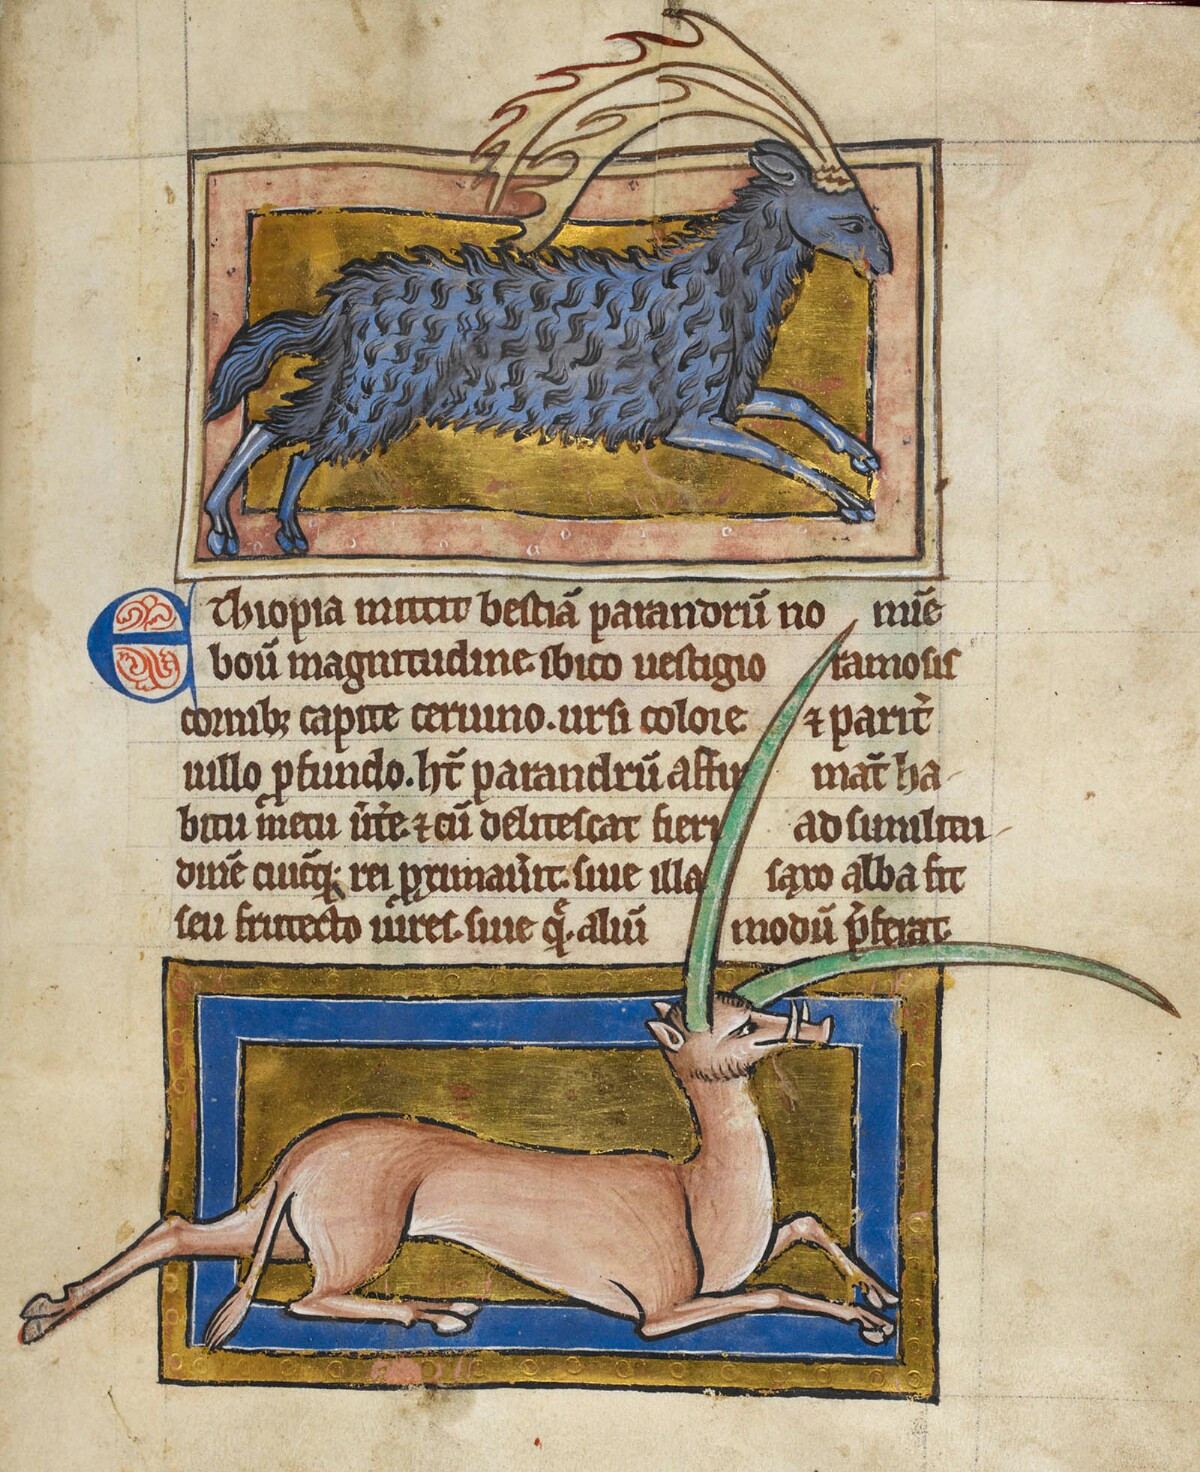 Ethiopia mittit bestiā parandrū no mīe
boū magnitudine. ibico uestigio ramosis
cornibꝫ capite ceruino. ursi colore ⁊ parit̾
uillo ꝓfundo. ht̄ parandrū affir mat̄ ha
bitu metu u̾te. ⁊ cū delitescat fieri ad similitu
dinē cuicq; rei ꝓximau̾it. siue illa saxo alba sit
seu frutecto uiret. siue q̄. aliū modū p̄ferat.